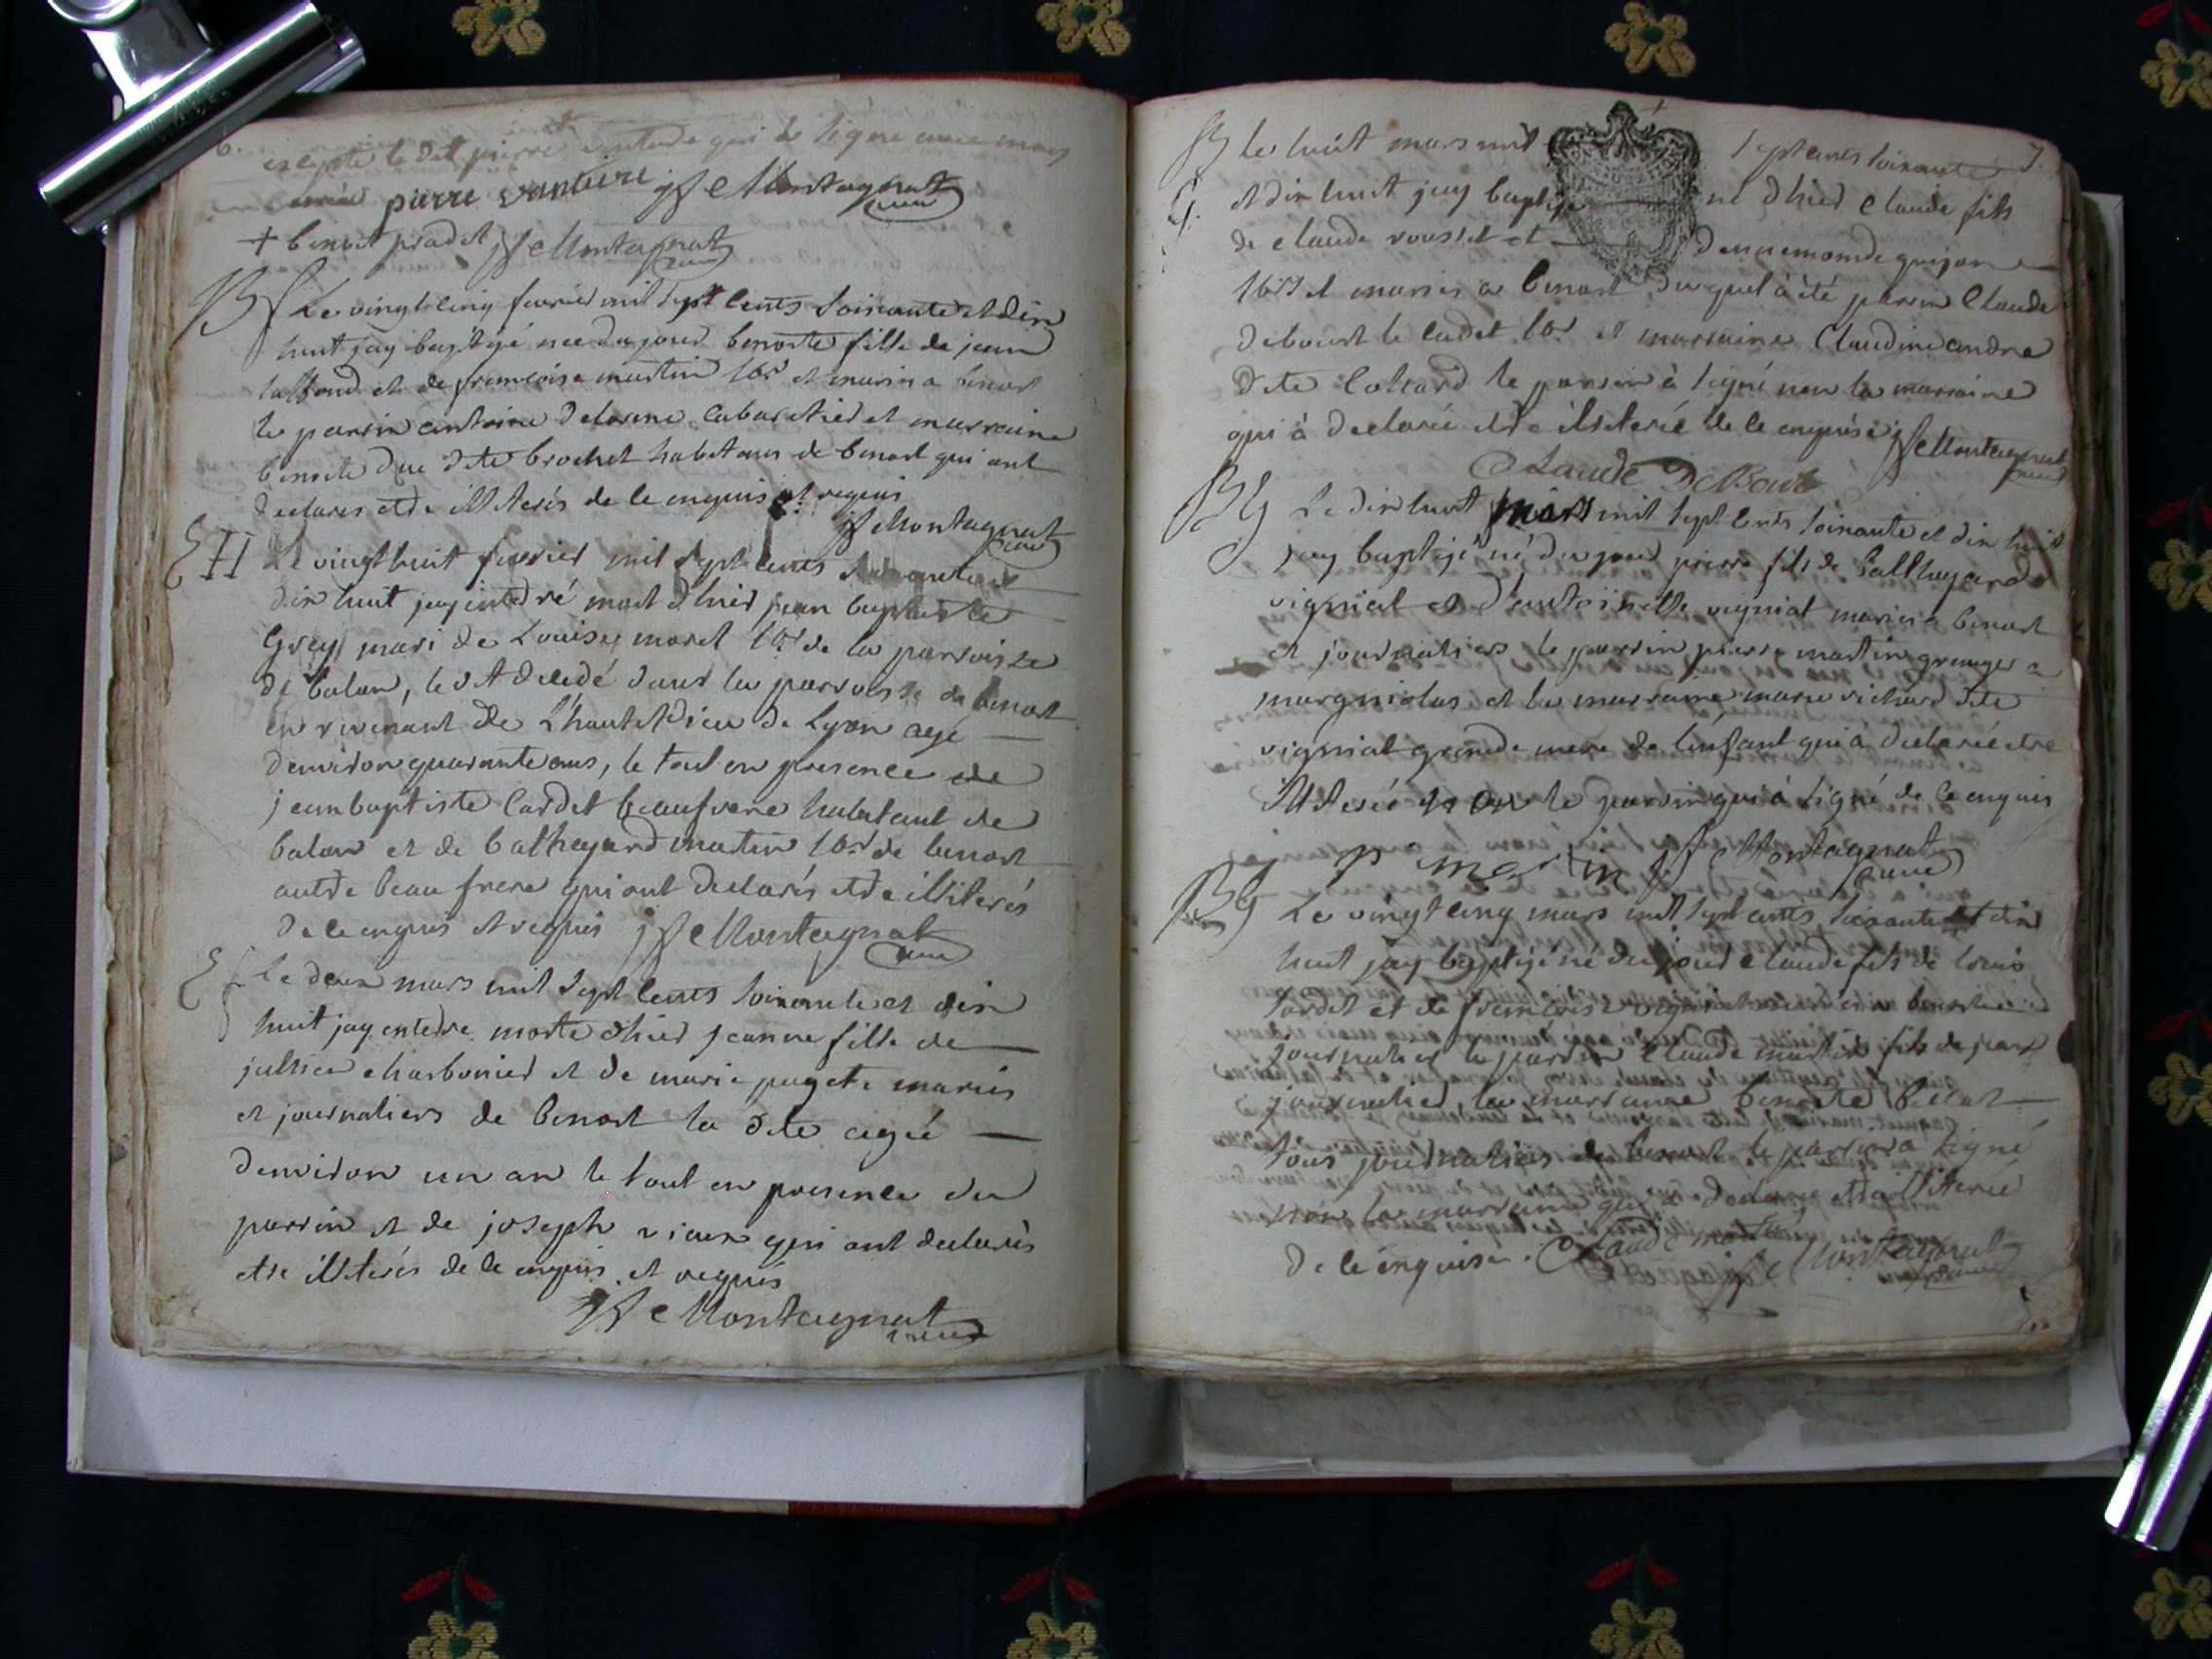 6.
excepte le dit pierre qui a signe avec moy
pierre vanture Montagnat
curé
+ benoit pradel Montagnat
curé
B f Le vingt cinq fevrier mil sept cents soixante et dix
huit jay baptizé nee du jour benoite fille de jean
laffond et de francoise martin lbrs et mariés a benost
le parrin antoine delorme cabaretier et marraine
benoite due dite brochet habitans de benost qui ont
declarés etre illiterés de ce enquis et requis
Montagnat
curé
E H Le vingt huit fevrier mil sept cents soixante et
dix huit jay interré mort d'hier jean baptiste
Grey mari de Louise morel lbr de la parroisse
de balan, le dit decedé dans la parroisse de benost
en revenant de L'hautel dieu de Lyon agé
d'environ quarante ans, le tout en presence de
jean baptiste Cardet beaufrere habitant de
balan et de balthazard martin lbr de benost
autre beau frere qui ont declarés etre illiterés
de ce enquis et requis Montagnat
curé
E f Le deux mars mil sept cents soixante et dix
huit jay enterre morte d'hier jeanne fille de
jullien charbonier et de marie pugete mariés
et journaliers de benost la dite agée
d'environ un an le tout en presence du
parrin et de joseph vioux qui ont declarés
etre illiterés de ce enquis et requis
Montagnat
curé
7.
B G le huit mars mil sept cents soixante
et dix huit jay baptizé né d'hier Claude fils
de Claude rousset et
lbrs et mariés a benost duquel à été parrin Claude
debourt le cadet lbr et marraine Claudine andre
dite Collard le parrin à signé non la marraine
qui à declaré etre illiterée de ce enquise Montagnat
curé
Claude
B G Le dix huit mars mil sept cents soixante et dix huit
jay baptizé né du jour pierre fils de balthazard
vignial et d'antoinette vignial mariés a benost
et journaliers le parrin pierre martin granger a
margniolas et la marraine marie richard dite
vignial grande mere de l'enfant qui à declaré etre
illiterée non le parrin qui à signé de ce enquis
P martin Montagnat
curé
B G Le vingt cinq mars mil sept cents soixante et dix
huit jay baptizé né du jour Claude fils de louis
tardet et de francoise vignial mariés a benost
journalier le parrin Claude martin fils de jean
journalier, la marraine benoite
tous journaliers de benost le parrin a signé
non la marraine qui a declaré etre illiterée
de ce enquise. Claude martin Montagnat
curé